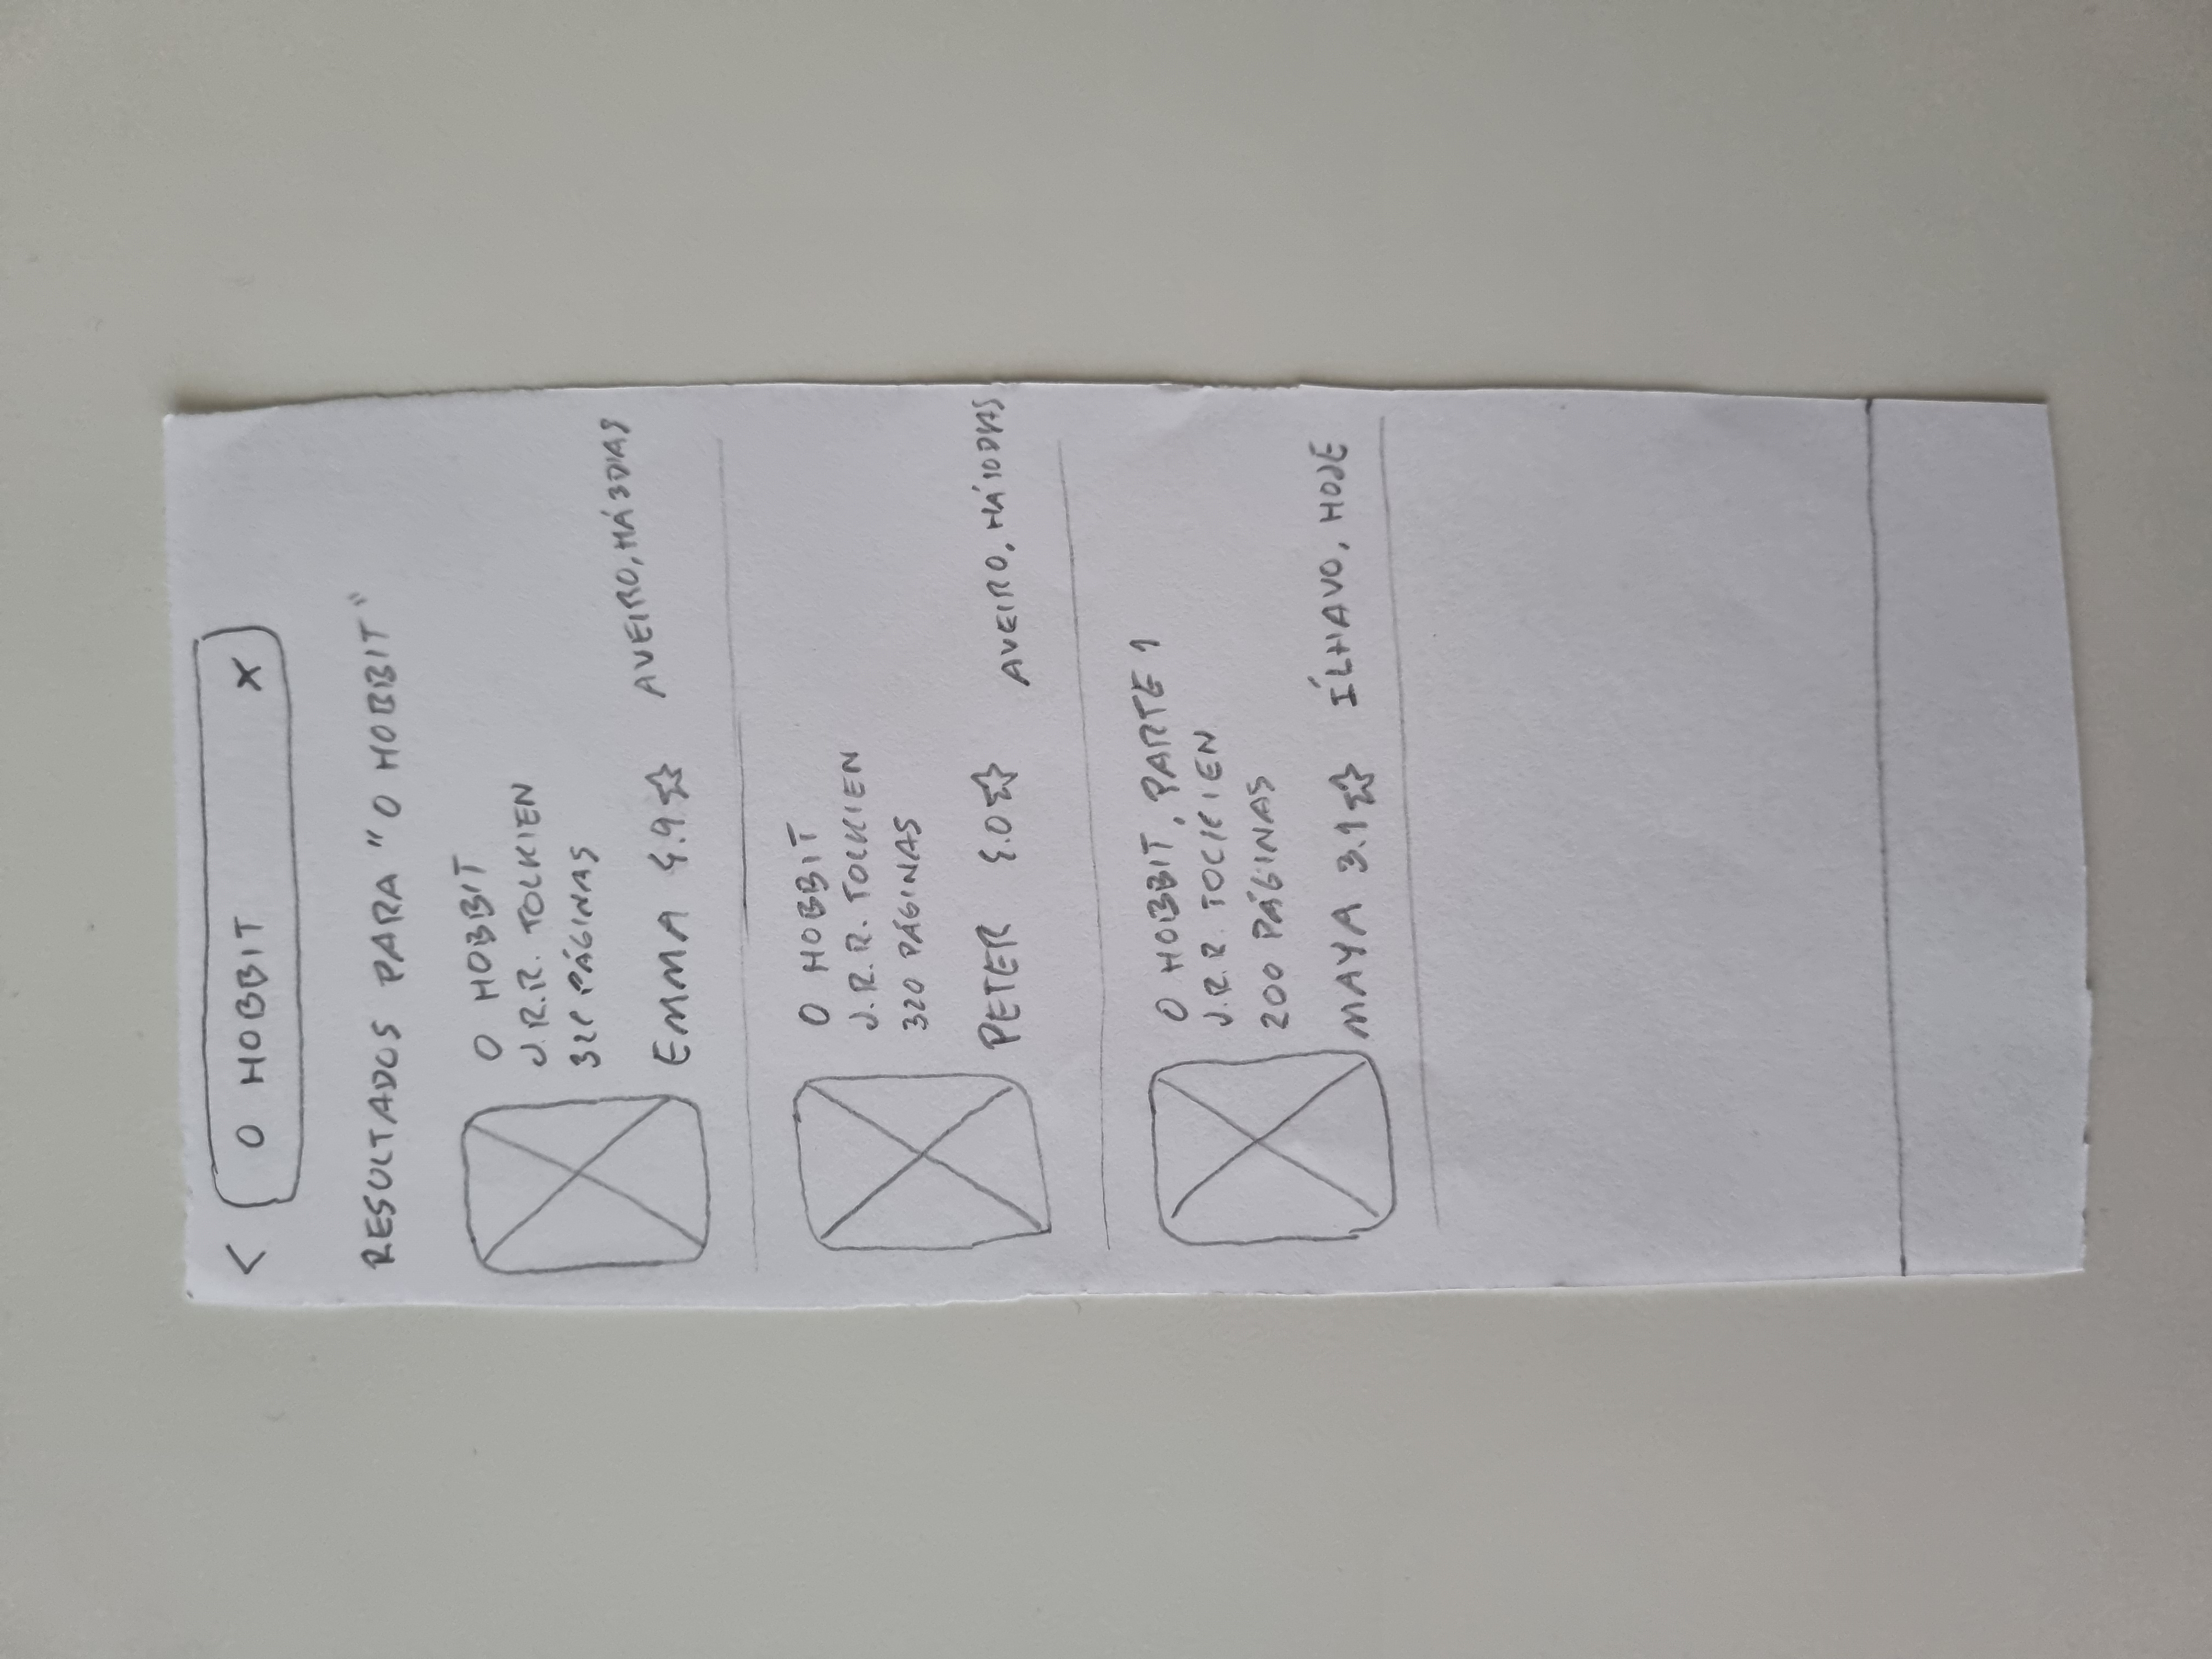 < O HOBBIT X
RESULTADOS PARA "O HOBBIT"
O HOBBIT
J.R.R. TOLKIEN
PÁGINAS
EMMA 4.9 ☆ AVEIRO, HÁ 3 DIAS
O HOBBIT
J.R.R. TOLKIEN
320 PÁGINAS
PETER 4.0 ☆ AVEIRO, HÁ 10 DIAS
O HOBBIT, PARTE 1
J.R.R. TOLKIEN
200 PÁGINAS
MAYA 3.1 ☆ ÍLHAVO, HOJE